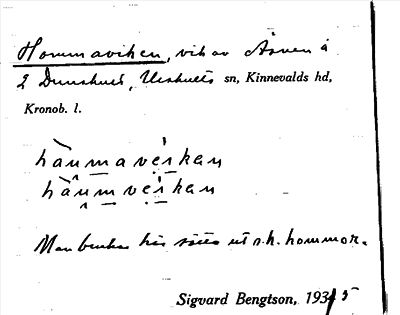 Hommaviken, vik av Åsnen å
2 Dunshult, Urshults sn, Kinnevalds hd,
Kronob. l.
hàumaveikan
hàumveikan
Man brukar här sätta ut s.k. hommor.
Sigvard Bengtson, 1935